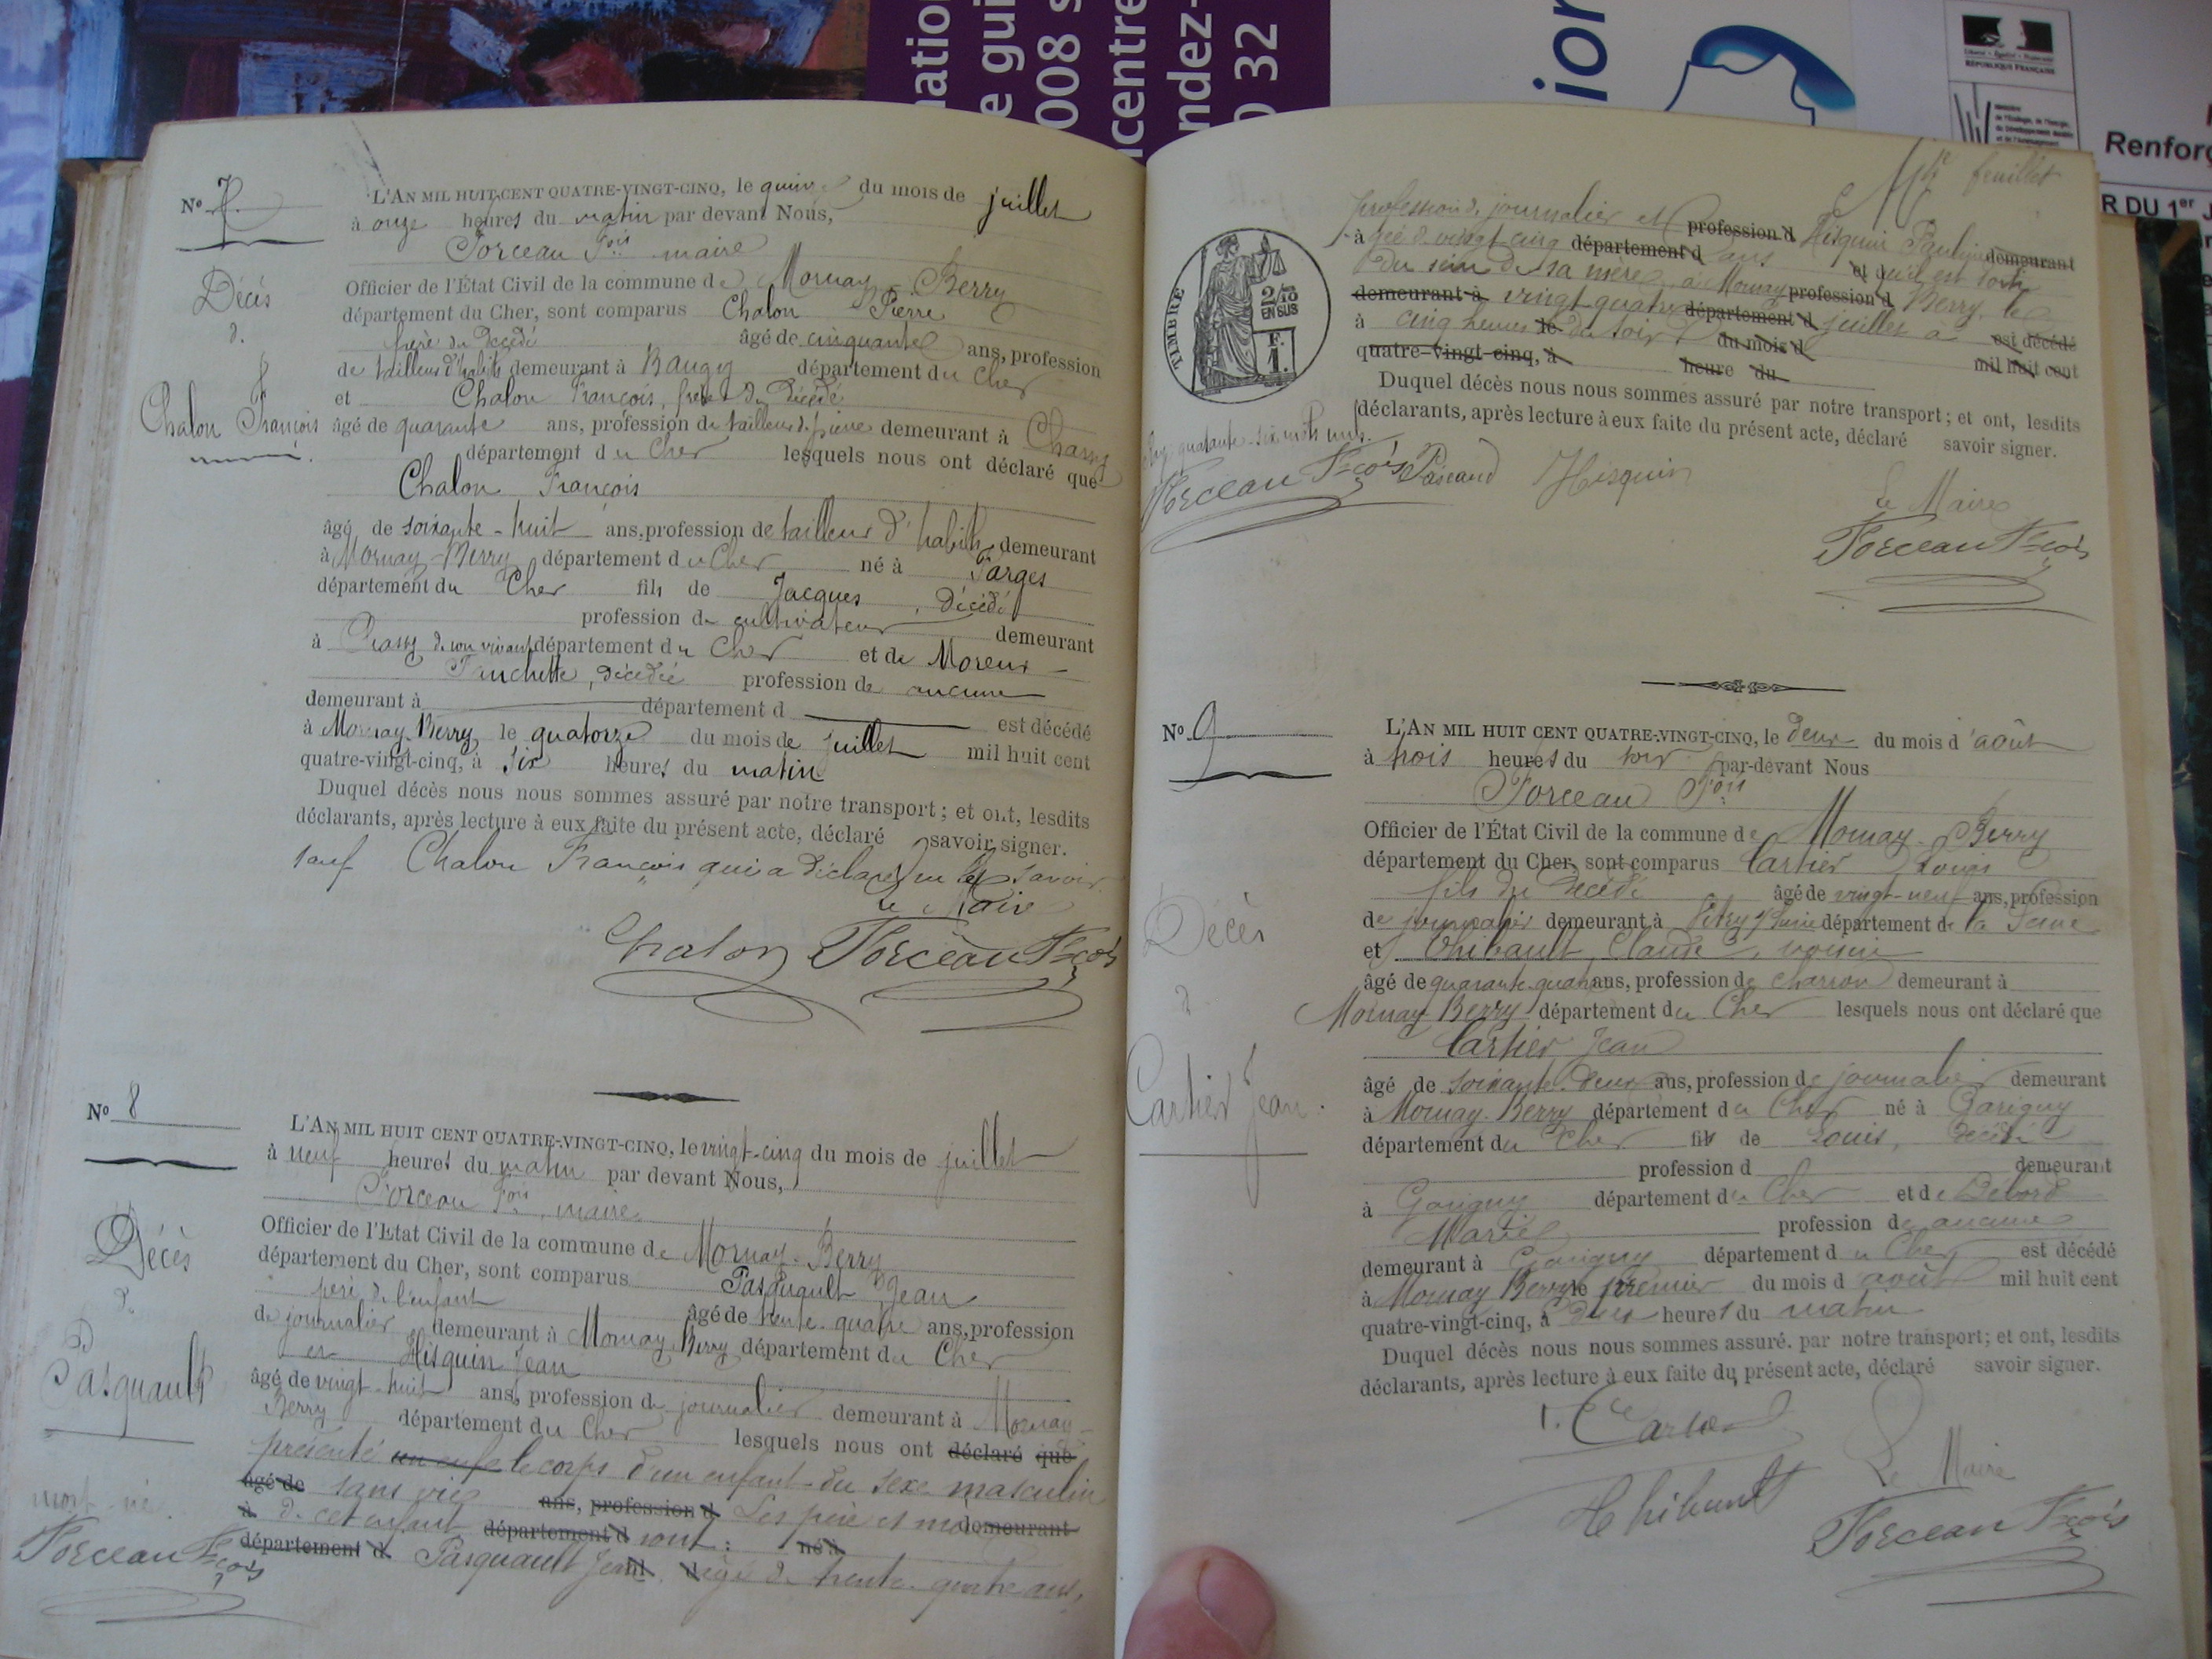 nation
e gui
008 s
centre
ndez-
0 32
ion
Liberté • Égalité • Fraternité
RÉPUBLIQUE FRANÇAISE
Renforc
R DU 1er J
ENTE
No 7
L'AN MIL HUIT-CENT QUATRE-VINGT-CINQ, le quinze du mois de juillet
à onze heures du matin par devant Nous,
Forceau Fois maire
Officier de l'État Civil de la commune de Mornay-Berry
département du Cher, sont comparus Chalon Pierre
frère du décédé âgé de cinquante ans, profession
de tailleur d'habits demeurant à Baugy département du Cher
et Chalon François, frère du décédé
âgé de quarante ans, profession de tailleur de pierre demeurant à Chassy
département du Cher lesquels nous ont déclaré que
Chalon François
âgé de soixante-huit ans, profession de tailleur d'habits demeurant
à Mornay-Berry département du Cher né à Farges
département du Cher fils de Jacques, décédé
profession de cultivateur demeurant
à de son vivant département du Cher et de Moreux
Fanchette, décédée profession de aucune
demeurant à département d est décédé
à Mornay-Berry le quatorze du mois de juillet mil huit cent
quatre-vingt-cinq, à six heures du matin
Duquel décès nous nous sommes assuré par notre transport; et ont, lesdits
déclarants, après lecture à eux faite du présent acte, déclaré savoir signer.
sauf Chalon François qui a déclaré ne le savoir
Le Maire
Chalon Forceau Fçois
Décès
d.
Chalon François
No 8
L'AN MIL HUIT CENT QUATRE-VINGT-CINQ, le vingt-cinq du mois de juillet
à neuf heures du matin par devant Nous,
Forceau Fois, maire
Officier de l'Etat Civil de la commune de Mornay-Berry
département du Cher, sont comparus Pasquault Jean
père de l'enfant âgé de trente-quatre ans, profession
de journalier demeurant à Mornay-Berry département du Cher
et Hisquin Jean
âgé de vingt-huit ans, profession de journalier demeurant à Mornay-
Berry département du Cher lesquels nous ont déclaré que
présenté un enfe le corps d'un enfant du sexe masculin
âgé de sans vie ans, profession d Les père et mère demeurant
à de cet enfant département d sont: né à
département d Pasquault Jean âgé de trente-quatre ans,
Décès
d.
Pasquault
mort-né.
Forceau Fçois
feuillet
profession de journalier et profession d Hisquin Pauline demeurant
à âgée de vingt-cinq département d ans et qu'il est sorti
du sein de sa mère, à Mornay profession d Berry, le
demeurant à vingt-quatre département d juillet à est décédé
à cinq heures le du soir du mois d mil huit cent
quatre-vingt-cinq, à heure du
Duquel décès nous nous sommes assuré par notre transport; et ont, lesdits
déclarants, après lecture à eux faite du présent acte, déclaré savoir signer.
TIMBRE
2/10
EN SUS
F.
1.
quarante-six mots nuls.
Forceau Fçois Hisquin
Le Maire
Forceau Fçois
No 9
L'AN MIL HUIT CENT QUATRE-VINGT-CINQ, le deux du mois d'août
à trois heures du soir par-devant Nous
Forceau Fois
Officier de l'État Civil de la commune de Mornay-Berry
département du Cher, sont comparus Cartier Louis
fils du décédé âgé de vingt-neuf ans, profession
de journalier demeurant à Vitry s/ Seine département de la Seine
et Thibault Claude, voisin
âgé de quarante-quatre ans, profession de charron demeurant à
Mornay-Berry département du Cher lesquels nous ont déclaré que
Cartier Jean
âgé de soixante-deux ans, profession de journalier demeurant
à Mornay-Berry département du Cher né à Garigny
département du Cher fils de Louis, décédé
profession d demeurant
à Garigny département du Cher et de Débord
Marie profession de aucune
demeurant à Garigny département du Cher est décédé
à Mornay-Berry le premier du mois d août mil huit cent
quatre-vingt-cinq, à deux heures du matin
Duquel décès nous nous sommes assuré. par notre transport; et ont, lesdits
déclarants, après lecture à eux faite du présent acte, déclaré savoir signer.
Décès
d
Cartier Jean.
Thibault
Le Maire
Forceau Fçois